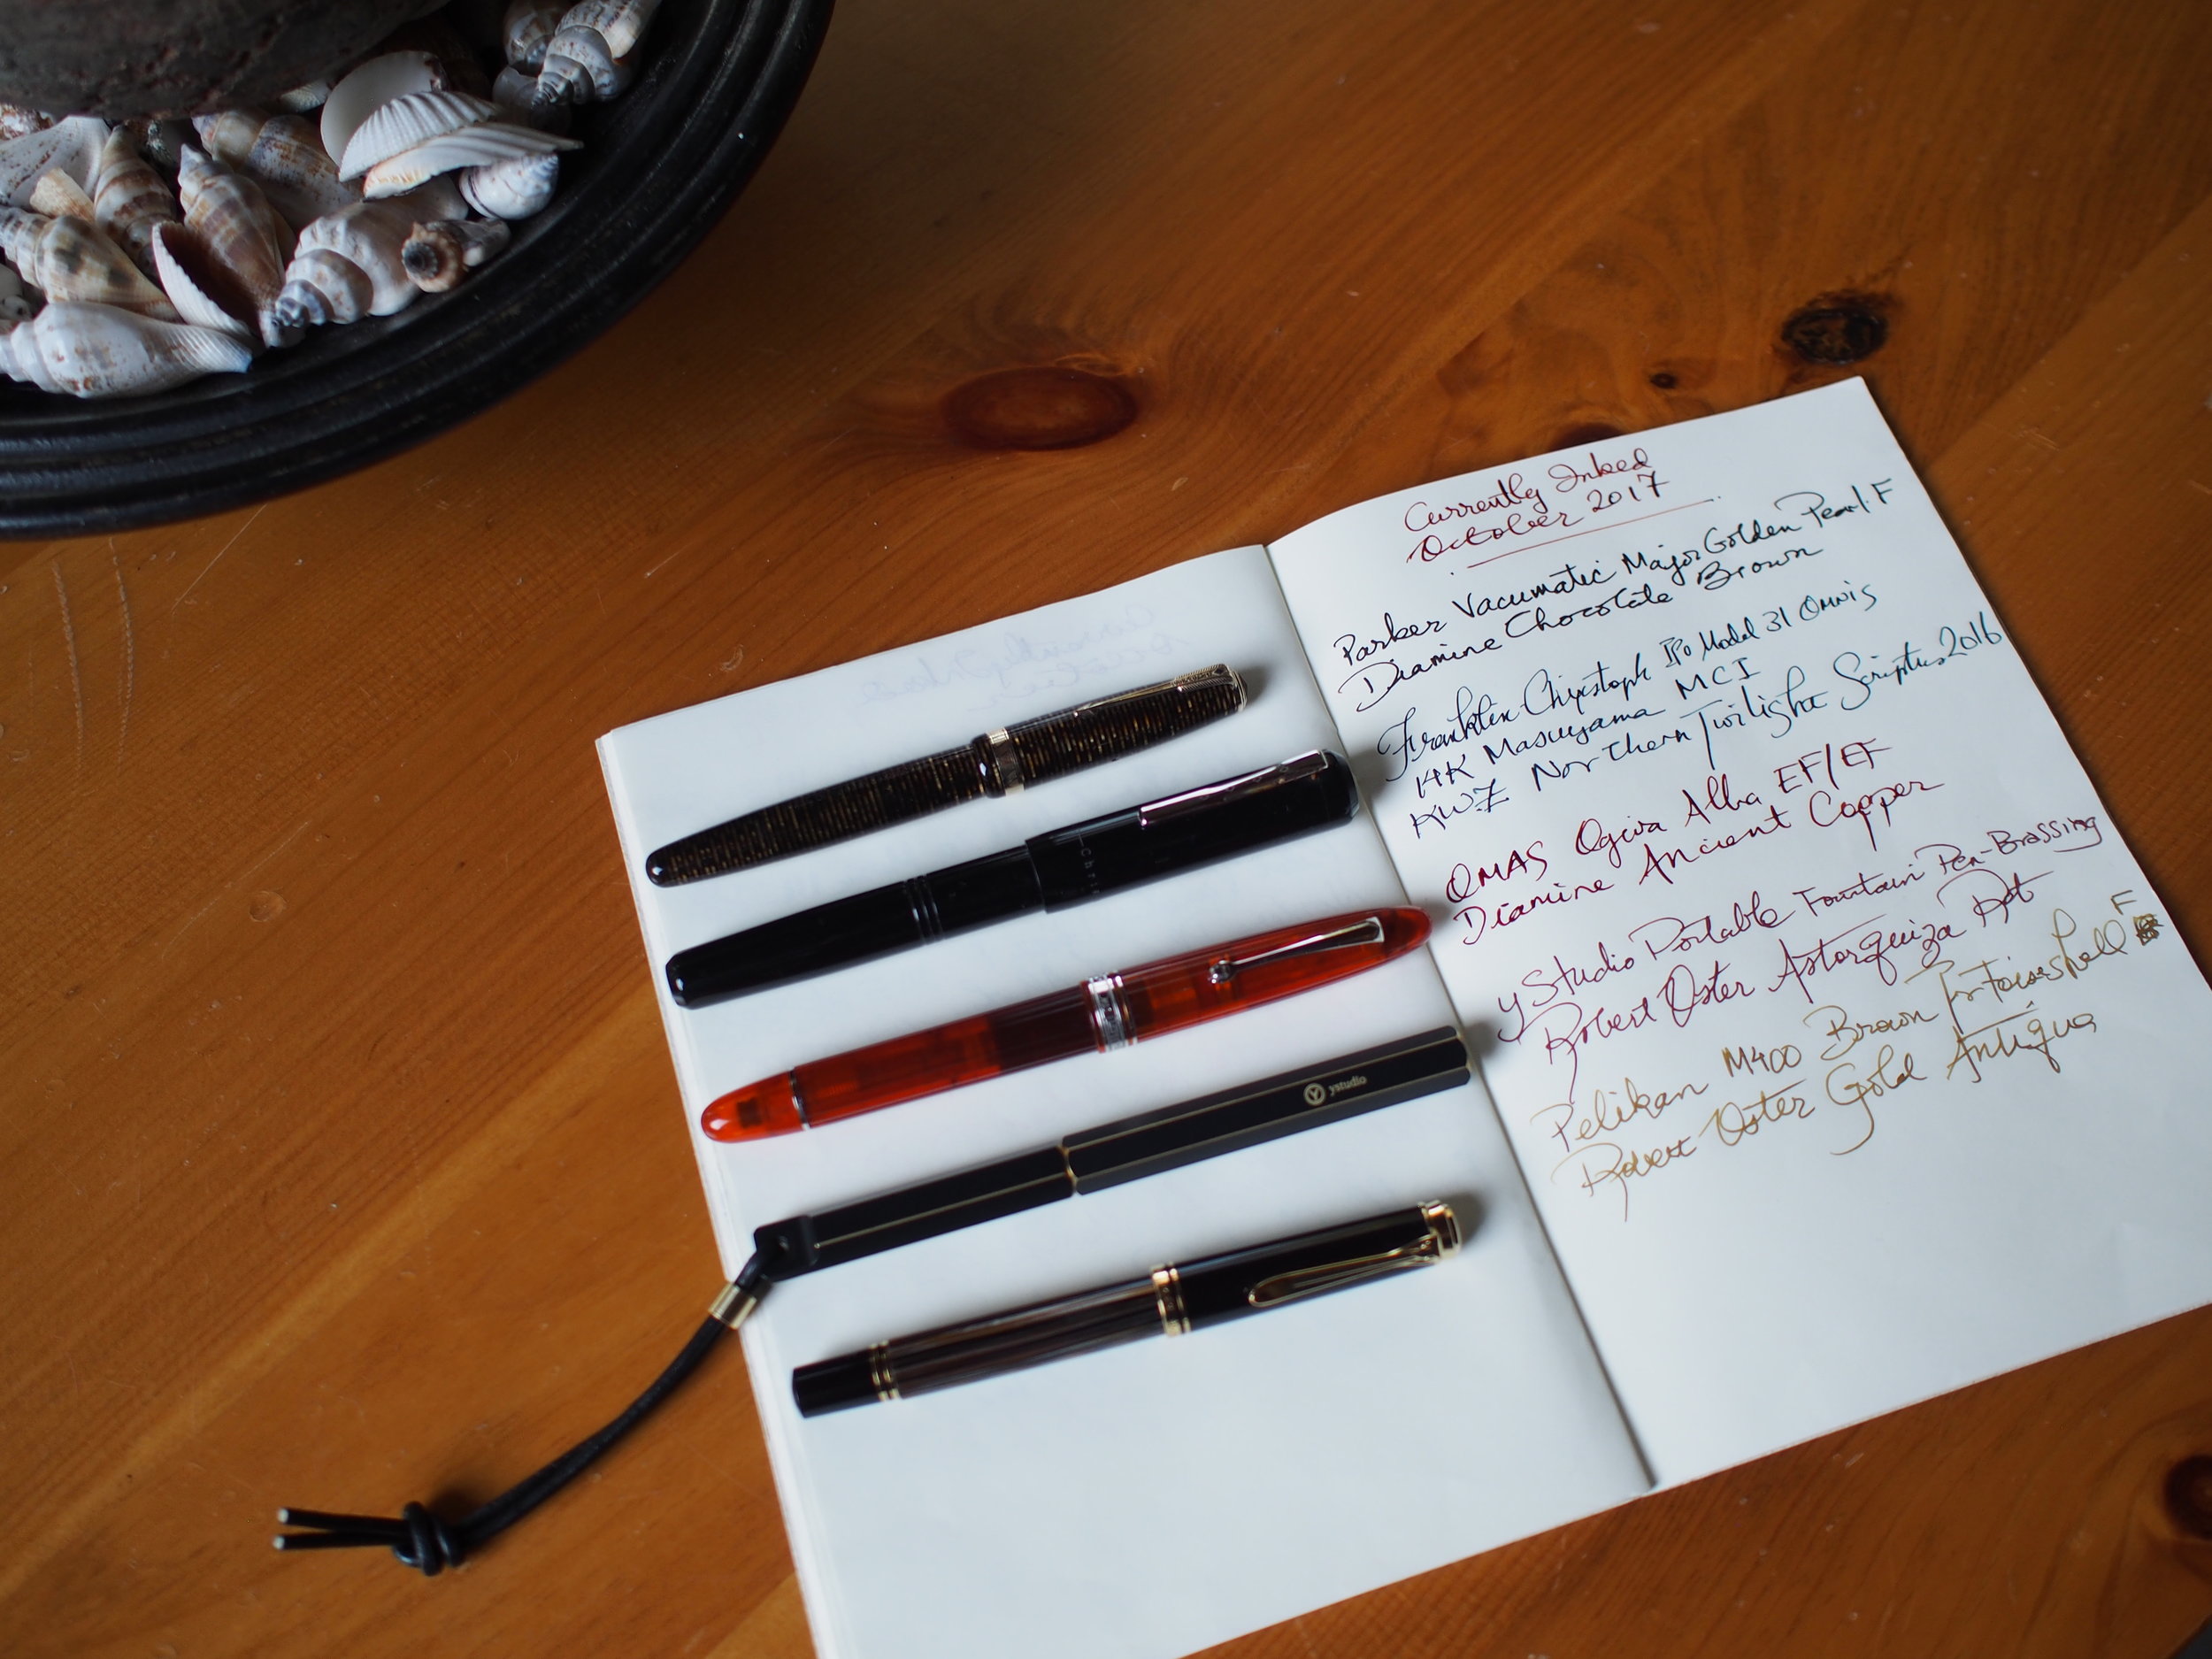 Currently Inked
October 2017
Parker Vacumatic Major Golden Pearl F
Diamine Chocolate Brown
Franklin-Christoph IPO Model 31 OMNIS
14K Masuyama MCI
KWZ Northern Twilight Scriptus 2016
OMAS Ogiva Alba EF/EF
Diamine Ancient Copper
yStudio Portable Fountain Pen-Brassing
Robert Oster Astorquiza Rot
Pelikan M400 Brown Tortoiseshell F
Robert Oster Gold Antiqua
ystudio